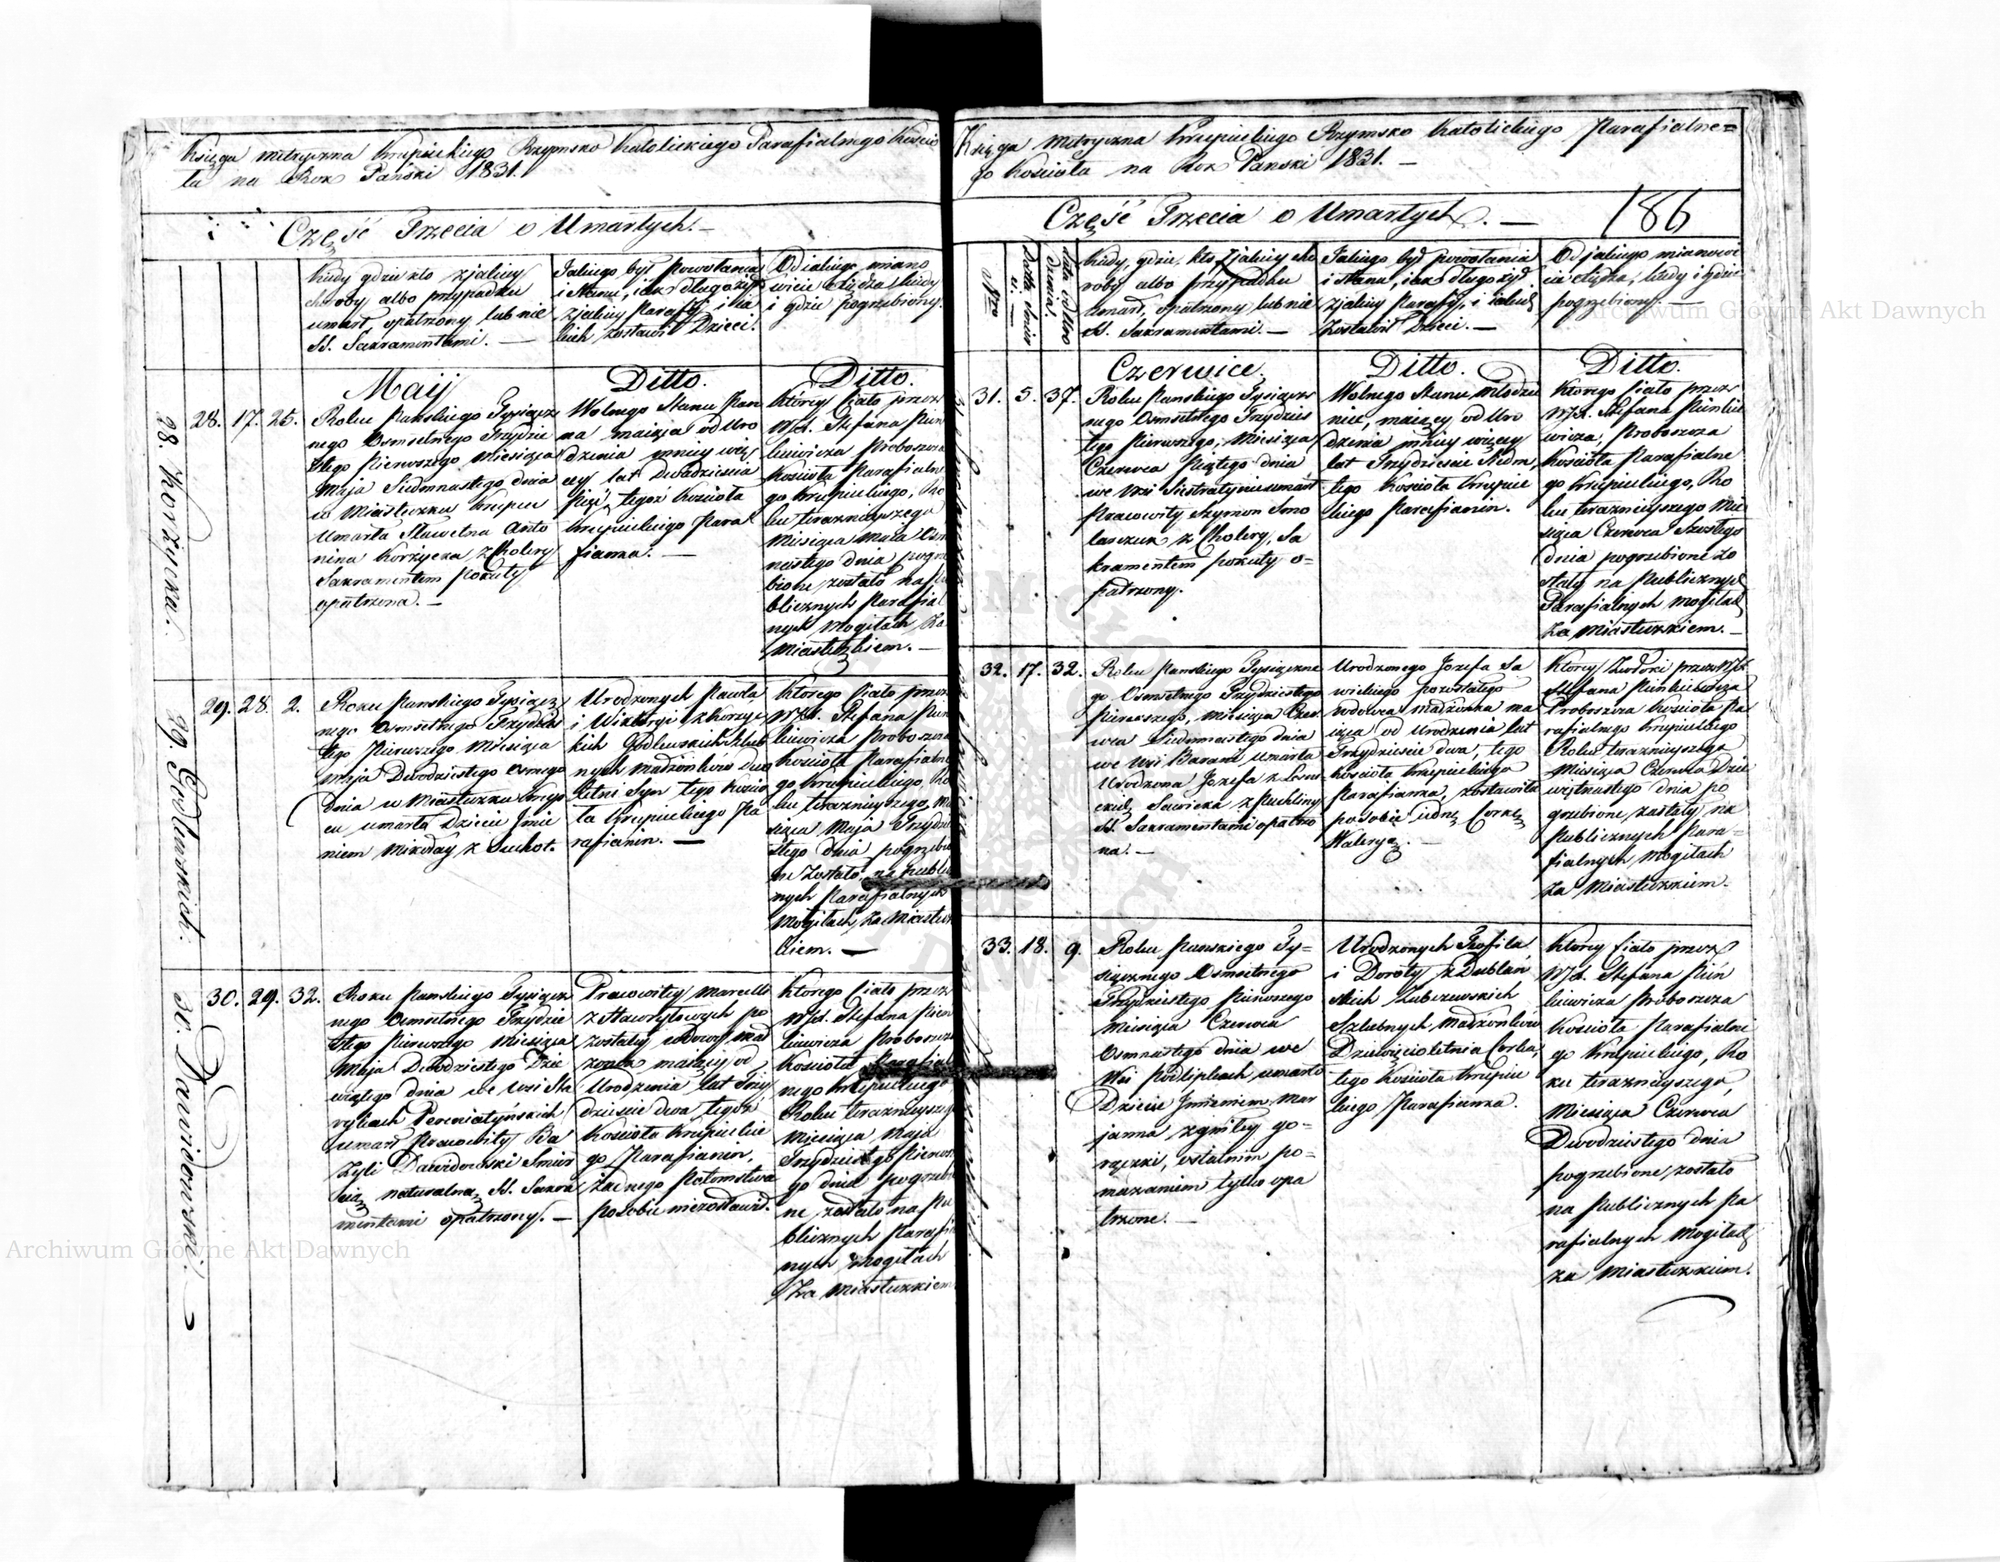 Księga metryczna Krupieckiego Rzymsko Katolickiego Parafialnego Kościo
ła na Rok Pański 1831.
Część Trzecia o Umarłych.—
Kiedy gdzie kto z jakiey
choroby albo przypadku
umarł, opatrzony lub nie
SS. Sakramentami. —
Jakiego był powołania
i Stanu, i jak długo żył
z jakiey Parafij i ia
kich zostawił Dzieci.
Od iakiego miano
wicie Xiędza kiedy
i gdzie pogrzebiony.
Maij
Ditto.
Ditto.
28. Korżycka.
28. 17. 25.
Roku Pańskiego Tysiącz
nego Osmsetnego Trzydzie
stego Pierwszego Miesiąca
Maja Siedmnastego dnia
w Miasteczku Krupcu
Umarła Sławetna Anto
nina Korżycka z Cholery
Sakramentem Pokuty
opatrzona. —
Wolnego Stanu Pan
na maiąca od Uro
dzenia mniey wię
cey lat Dwadzieścia
Pięć, tegoż Kościoła
Krupieckiego Para
fianka. —
Którey Ciało przez
WJX. Stefana
Proboszcza
Kościoła Parafialne
go Krupieckiego, Ro
ku teraznieyszego
Miesiąca Maia Osm
nastego dnia pogrze
bione zostało na Pu
blicznych Parafial
nych Mogiłach Za
Miasteczkiem. —
29. Godlewskich.
29. 28. 2.
Roku Pańskiego Tysiącz
nego Osmsetnego Trzydzies
tego Pierwszego Miesiąca
Maja Dwudziestego Osmego
Dnia w Miasteczku Krup
cu umarło Dziecie Jmie
niem Mikołay z Suchot.
Urodzonych Pawła
i Wiktoryi z Korzyc
kich Godlewskich Szlub
nych Małżonków dwu
letni Syn tego Kościo
ła Krupieckiego Pa
rafianin. —
Którego Ciało przez
WJX. Stefana
Proboszcza
Kościoła Parafialne
go Krupieckiego, Ro
ku teraznieyszego, Mie
siąca Maja Trzydzie
stego dnia pogrzebio
ne Zostało, na Publicz
nych Parafialnych
Mogiłach, za Miastecz
kiem. —
30. Dawidowski.
30. 29. 32.
Roku Pańskiego Tysiącz
nego Osmsetnego Trzydzie
stego Pierwszego Miesiąca
Maja Dwudziestego Dzie
wiątego dnia we Wsi Sta
rykach
umarł Pracowity Ba
zyli Dawidowski Smier
cią naturalną, SS. Sakra
mentami opatrzony. —
Pracowitey Marcelli
z Hawryłowych po
został wdowy mał
żonek maiący od
Urodzenia lat Trzy
dzieście dwa, tegoż
Kościoła Krupieckie
go Parafianin,
Żadnego Potomstwa
po sobie niezostawił.
Którego Ciało przez
WJX. Stefana
Proboszcza
Kościoła Parafial
nego Krupieckiego
Roku teraznieyszego
Miesiąca Maja
Trzydziestego Pierwsze
go dnia pogrzebio
ne zostało na Pu
blicznych Parafial
nych Mogiłach
Za Miasteczkiem
Księga Metryczna Krupieckiego Rzymsko Katolickiego Parafialne=
go Kościoła na Rok Pański 1831. —
Część Trzecia o Umarłych. —
186
Nro
Data dnia
Lata od Uro
dzenia.
Kiedy, gdzie, kto z jakiey cho
roby albo przypadku
Umarł, opatrzony lub nie
SS. Sakramentami. —
Jakiego był powołania
i Stanu, i jak długo żył.
z jakiey Parafij, i iakich
Zostawił Dzieci. —
Od jakiego mianowi
cie Xiędza, kiedy i gdzie
pogrzebiony. —
Czerwiec.
Ditto.
Ditto.
31. 5. 37.
Roku Pańskiego Tysiącz
nego Osmsetnego Trzydzies
tego Pierwszego, Miesiąca
Czerwca Piątego dnia
we Wsi Siestratynie umarł
Pracowity Szymon Smo
larczuk z Cholery, Sa
kramentem pokuty o=
patrzony.
Wolnego Stanu młodzie
niec, maiący od Uro
dzenia mniey więcey
lat Trzydzieście Siedm,
tego Kościoła Krupie
ckiego Parafianin.
Którego Ciało przez
WJX. Stefana
Proboszcza
Kościoła Parafialne
go Krupieckiego, Ro
ku teraznieyszego Mie
siąca Czerwca Szóstego
dnia pogrzebione zo
stały na Publicznych
Parafialnych Mogiłach
Za Miasteczkiem. —
32. 17. 32.
Roku Pańskiego Tysiączne
go Osmsetnego Trzydziestego
Pierwszego, Miesiąca Czer
wca Siedmnastego dnia
we Wsi Barani umarła
Urodzona Józefa z
Sawicka z Puchliny
SS. Sakramentami opatrzo
na. —
Urodzonego Józefa Sa
wickiego pozostałego
wdowca małżonka ma
iąca od Urodzenia lat
Trzydzieście dwa, tego
Kościoła Krupieckiego
Parafianka, zostawiła
po sobie iednę Corkę
Waleryą. —
Którey Zwłoki przez WJX.
Stefana
Proboszcza Kościoła Pa
rafialnego Krupieckiego
Roku teraznieyszego
Miesiąca Czerwca Dzie
więtnastego dnia po
grzebione zostały na
Publicznych Para=
fialnych Mogiłach
za Miasteczkiem.
33. 18. 9.
Roku Pańskiego Ty=
siącznego Osmsetnego
Trzydziestego Pierwszego
Miesiąca Czerwca
Osmnastego dnia we
Wsi Podlipkach umarło
Dziecie Jmieniem Mar
janna z gniłey go=
rączki, ostatnim po=
mazaniem tylko opa
trzone. —
Urodzonych Teofila
i Doroty z Dublań
skich Zubczewskich
Szlubnych Małżonków
Dziewięcioletnia Corka,
tego Kościoła Krupie
ckiego Parafianka.
Którey Ciało przez
WJX. Stefana
Proboszcza
Kościoła Parafialne
go Krupieckiego, Ro
ku teraznieyszego,
Miesiąca Czerwca
Dwudziestego dnia
pogrzebione, zostało
na Publicznych Pa
rafialnych Mogiłach
za Miasteczkiem.
Archiwum Główne Akt Dawnych
Archiwum Główne Akt Dawnych